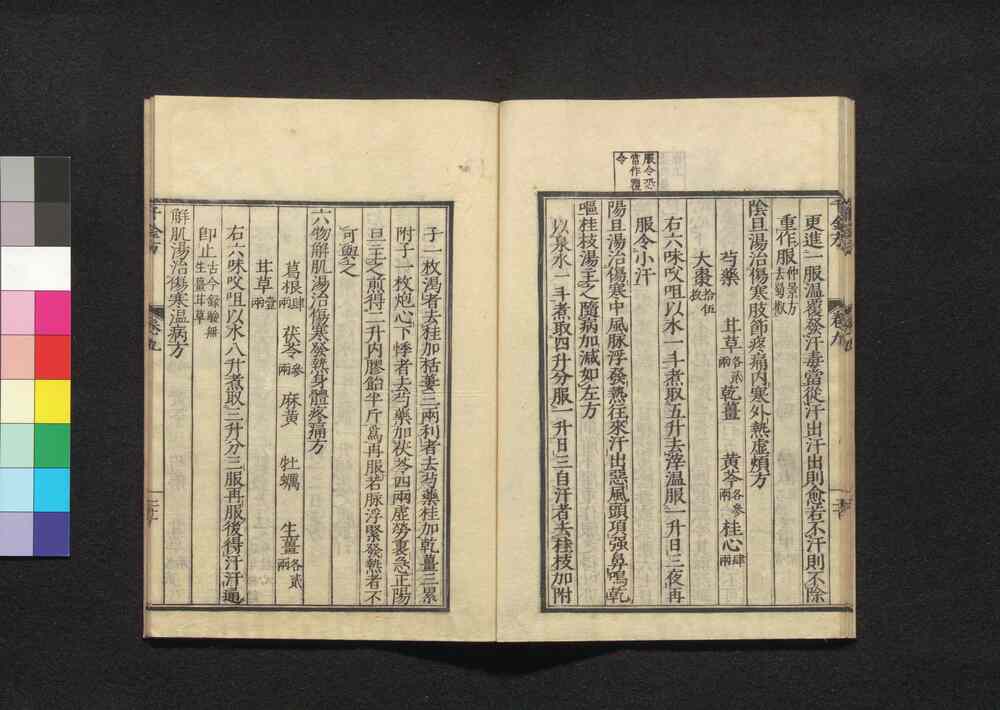 服令恐
當作覆
令
更進一服温覆發汗毒當從汗出汗出則愈若不汗則不除
重作服仲景方去葛根
陰旦湯治傷寒肢節疼痛内寒外熱虛煩方
芍藥 甘草各貳兩 乾薑 黃芩各參兩 桂心肆兩
大棗拾伍枚
右六味㕮咀以水一斗煮取五升去滓温服一升日三夜再
服令小汗
陽旦湯治傷寒中風脉浮發熱往來汗出惡風頭項强鼻鳴乾
嘔桂枝湯主之隨病加減如左方
以泉水一斗煮取四升分服一升日三自汗者去桂枝加附
千金方 卷九
子一枚渴者去桂加栝蔞三兩利者去芍藥桂加乾薑三累
附子一枚炮心下悸者去芍藥加茯苓四兩虛勞裏急正陽
旦主之煎得二升内膠飴半斤爲再服若脉浮緊發熱者不
可與之
六物解肌湯治傷寒發熱身體疼痛方
葛根肆兩 茯苓參兩 麻黃 牡蠣 生薑各貳兩
甘草壹兩
右六味㕮咀以水八升煮取三升分三服再服後得汗汗通
卽止古今錄驗無生薑甘草
解肌湯治傷寒温病方
千金方 卷九